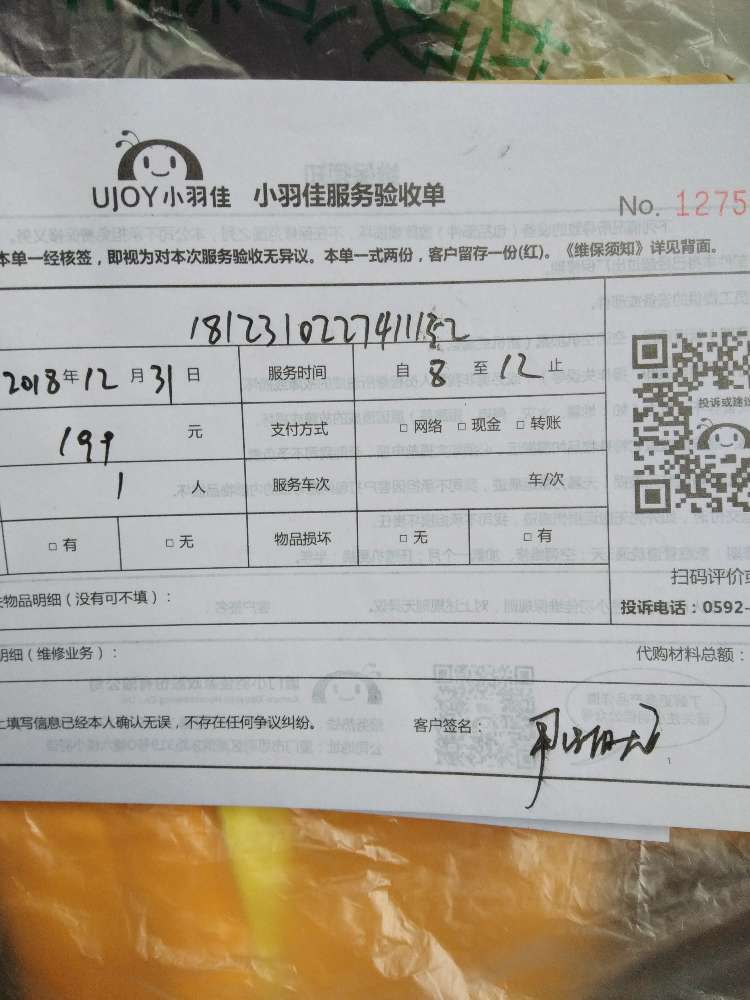 UJOY小羽佳 小羽佳服务验收单
No. 1275
本单一经核签，即视为对本次服务验收无异议。本单一式两份，客户留存一份(红)。《维保须知》详见背面。
1812310227411152
2018年12月31日 服务时间 自8至12止
投诉或建议
199元 支付方式 □ 网络 □ 现金 □ 转账
1人 服务车次 车/次
□ 有 □ 无 物品损坏 □ 无 □ 有
扫码评价或
物品明细（没有可不填）：
投诉电话：0592-
明细（维修业务）：
代购材料总额：
上填写信息已经本人确认无误，不存在任何争议纠纷。 客户签名：